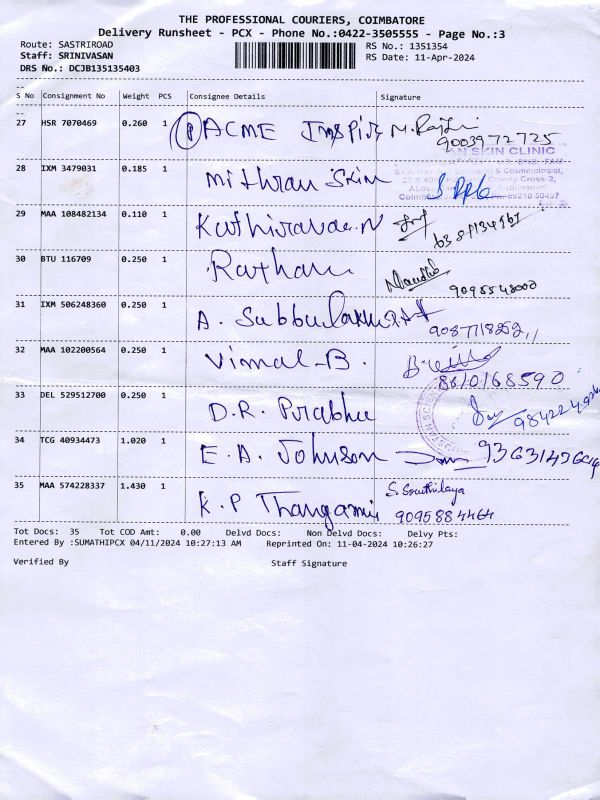 THE PROFESSIONAL COURIERS, COIMBATORE
Delivery Runsheet - PCX - Phone No.:0422-3505555 - Page No.:3
Route: SASTRIROAD
RS No.: 1351354
Staff: SRINIVASAN
RS Date: 11-Apr-2024
DRS No.: DCJB135135403
S No Consignment No Weight PCS Consignee Details Signature
27 HSR 7070469 0.260 1 ACME
9003972725
SKIN CLINIC
28 IXM 3479031 0.185 1 Mithran Skin
29 MAA 108482134 0.110 1 Kathiravan.N
30 BTU 116709 0.250 1 Rathan
31 IXM 506248360 0.250 1 A. Subbulakshmi
32 MAA 102200564 0.250 1 Vimal-B.
8610168590
33 DEL 529512700 0.250 1 D.R. Prabhu
34 TCG 40934473 1.020 1 E.A. Johnson
35 MAA 574228337 1.430 1 K.P Thangamii
9095884464
Tot Docs: 35 Tot COD Amt: 0.00 Delvd Docs: Non Delvd Docs: Delvy Pts:
Entered By :SUMATHIPCX 04/11/2024 10:27:13 AM Reprinted On: 11-04-2024 10:26:27
Verified By Staff Signature